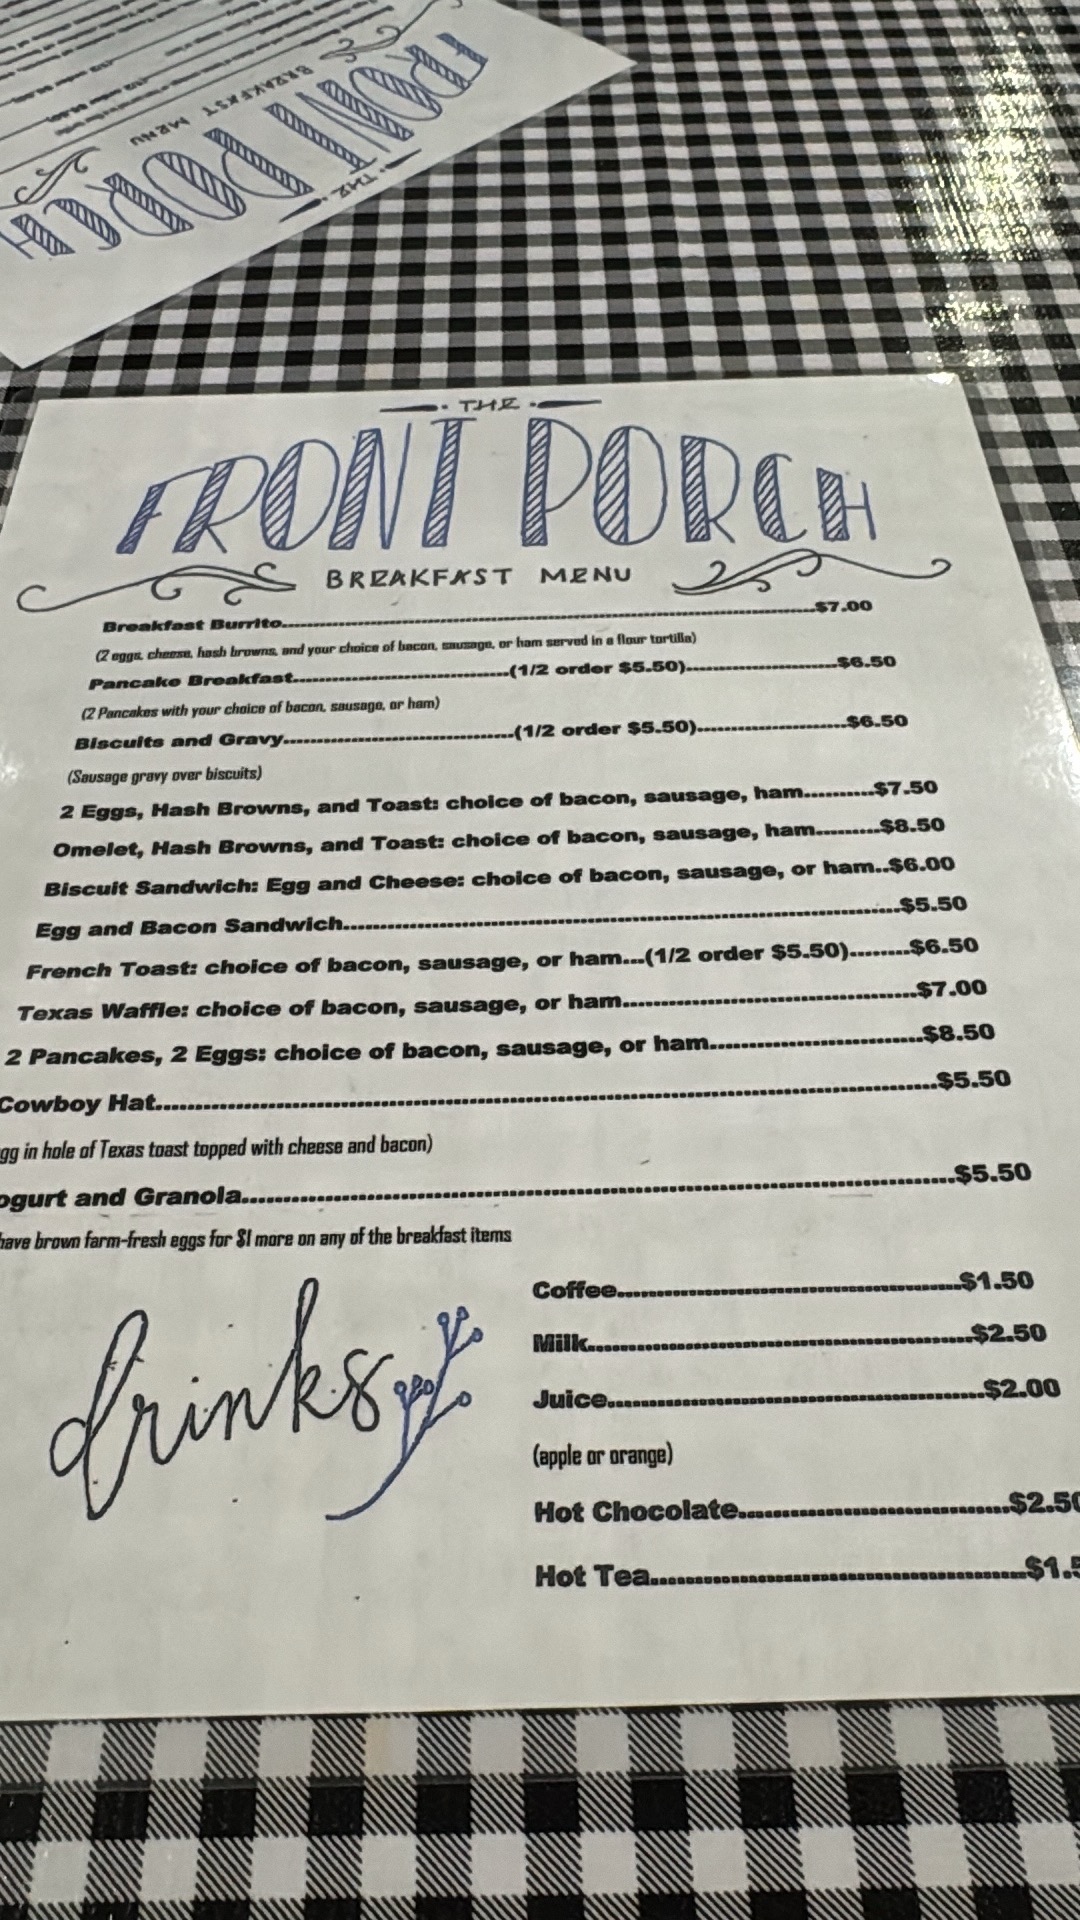 THE
FRONT PORCH
BREAKFAST MENU
THE
FRONT PORCH
BREAKFAST MENU
Breakfast Burrito..........$7.00
(2 eggs, cheese, hash browns, and your choice of bacon, sausage, or ham served in a flour tortilla)
Pancake Breakfast..........(1/2 order $5.50)..........$6.50
(2 Pancakes with your choice of bacon, sausage, or ham)
Biscuits and Gravy..........(1/2 order $5.50)..........$6.50
(Sausage gravy over biscuits)
2 Eggs, Hash Browns, and Toast: choice of bacon, sausage, ham..........$7.50
Omelet, Hash Browns, and Toast: choice of bacon, sausage, ham.........$8.50
Biscuit Sandwich: Egg and Cheese: choice of bacon, sausage, or ham..$6.00
Egg and Bacon Sandwich..........$5.50
French Toast: choice of bacon, sausage, or ham...(1/2 order $5.50)........$6.50
Texas Waffle: choice of bacon, sausage, or ham..........$7.00
2 Pancakes, 2 Eggs: choice of bacon, sausage, or ham..........$8.50
Cowboy Hat..........$5.50
gg in hole of Texas toast topped with cheese and bacon)
ogurt and Granola..........$5.50
have brown farm-fresh eggs for $1 more on any of the breakfast items
drinks
Coffee..........$1.50
Milk..........$2.50
Juice..........$2.00
(apple or orange)
Hot Chocolate..........$2.50
Hot Tea..........$1.5